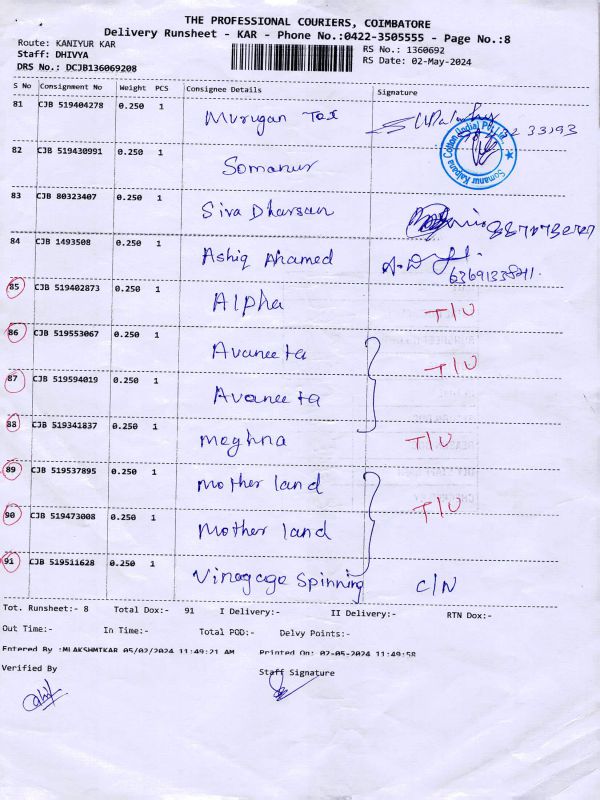 THE PROFESSIONAL COURIERS, COIMBATORE
Delivery Runsheet - KAR - Phone No.:0422-3505555 - Page No.:8
Route: KANIYUR KAR
Staff: DHIVYA
DRS No.: DCJB136069208
RS No.: 1360692
RS Date: 02-May-2024
S No Consignment No Weight PCS Consignee Details Signature
81 CJB 519404278 0.250 1 Murugan Tex
82 CJB 519430991 0.250 1 Somanur
83 CJB 80323407 0.250 1 Siva Dharsan
84 CJB 1493508 0.250 1 Ashiq Ahamed
85 CJB 519402873 0.250 1 Alpha T/U
86 CJB 519553067 0.250 1 Avaneeta T/U
87 CJB 519594019 0.250 1 Avaneeta
88 CJB 519341837 0.250 1 Meghna T/U
89 CJB 519537895 0.250 1 Mother land
90 CJB 519473008 0.250 1 Mother land T/U
91 CJB 519511628 0.250 1 Vinagaga Spinning C/N
Tot. Runsheet:- 8 Total Dox:- 91 I Delivery:- II Delivery:- RTN Dox:-
Out Time:- In Time:- Total POD:- Delvy Points:-
Entered By :MLAKSHMIKAR 05/02/2024 11:49:21 AM Printed On: 02-05-2024 11:49:58
Verified By Staff Signature